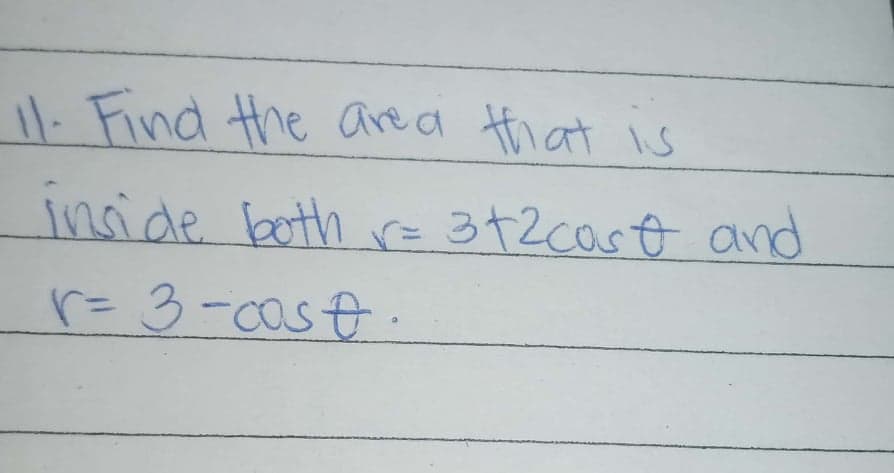 11. Find the area that is
inside both r= 3+2cosθ and
r= 3-cosθ.